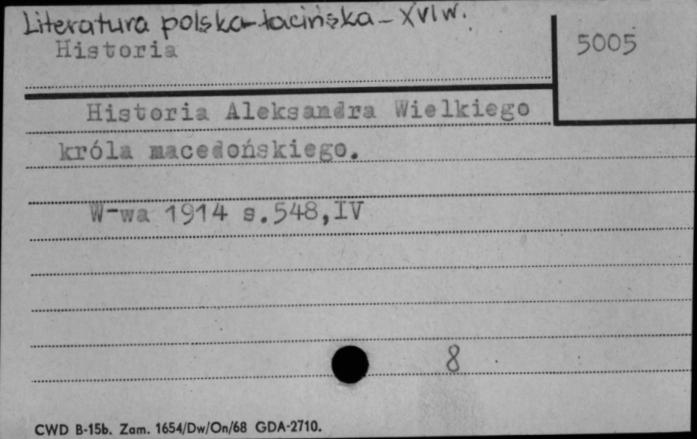 Literatura polska-łacińska-XVI w.
Historia
5005
Historia Aleksandra Wielkiego
króla macedońskiego.
W-wa 1914 s.548,IV
8
CWD B-15b. Zam. 1654/Dw/On/68 GDA-2710.